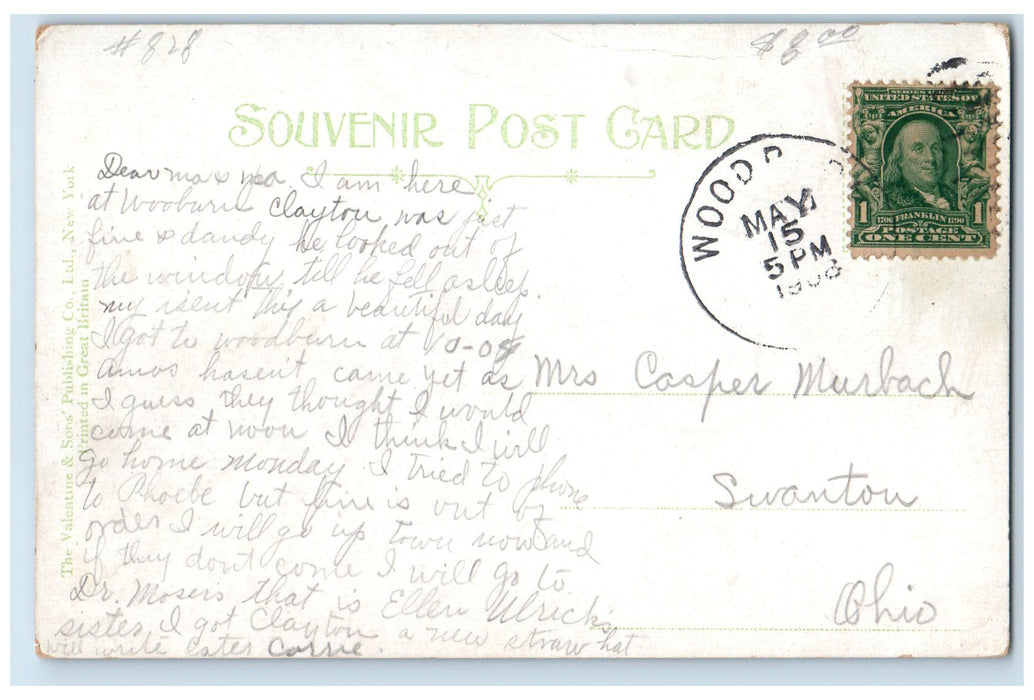 # 828
$8.00
SOUVENIR POST CARD
SERIES 1902
UNITED STATES OF
AMERICA
1 1706 FRANKLIN 1790 1
POSTAGE
ONE CENT
WOODB
MAY
15
5 PM
The Valentine & Sons' Publishing Co., Ltd., New York
Printed in Great Britain
Dear ma & pa. I am here
at Wooburn Clayton was just
fine & dandy he looked out of
the window till he fell asleep.
my isent this a beautiful day
I got to woodburn at 10-08
Amos hasen't came yet as
I guess they thought I would
come at noon I think I will
go home monday I tried to phone
to Phoebe but line is out of
order I will go up town now and
if they dont come I will go to
Dr. Mosers that is Ellen Ulrick's
sister I got Clayton a new straw hat
will write later Carrie.
Mrs Casper Murbach
Swanton
Ohio